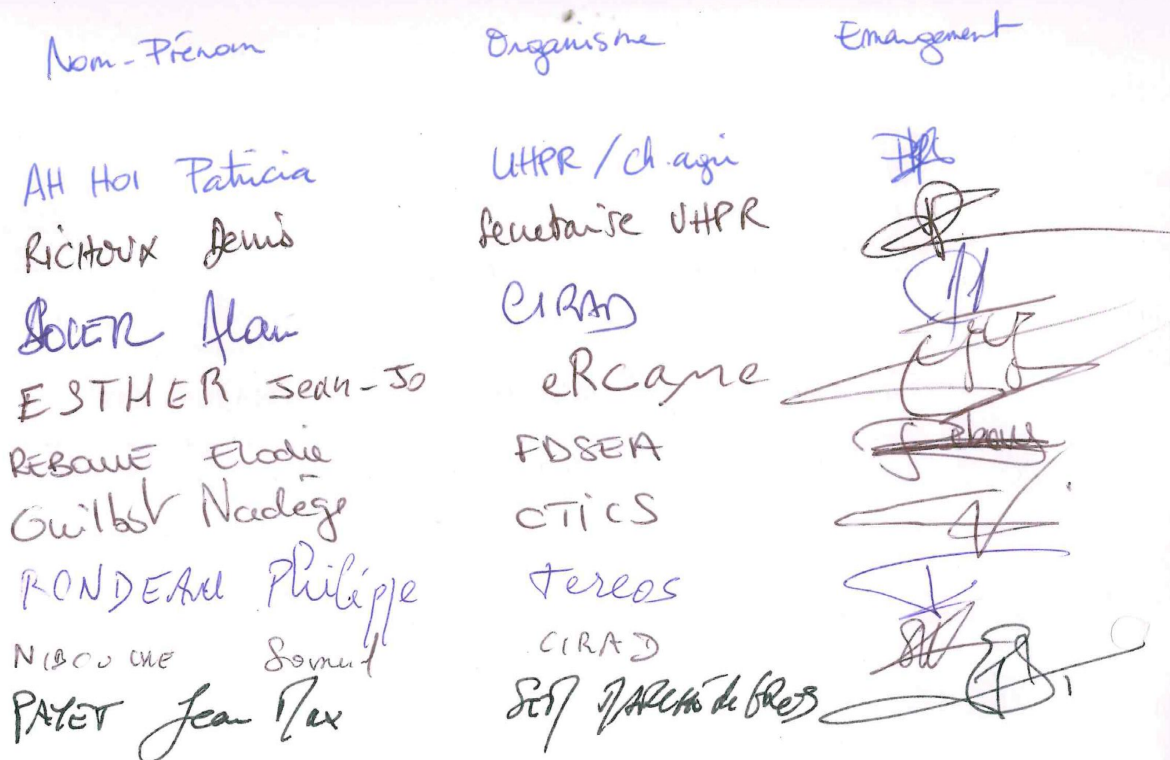 Nom-Prénom Organisme Emargement
AH HOI Patricia UHPR / ch. agri
RICHOUX Denis Secretaire UHPR
SOLER Alain CIRAD
ESTHER Jean-Jo eRcane
REBOULE Elodie FDSEA
Guilbot Nadège CTICS
RONDEAU Philippe Tereos
NIBOUCHE Samuel CIRAD
PAYET Jean Max SEM MARCHÉ de GROS